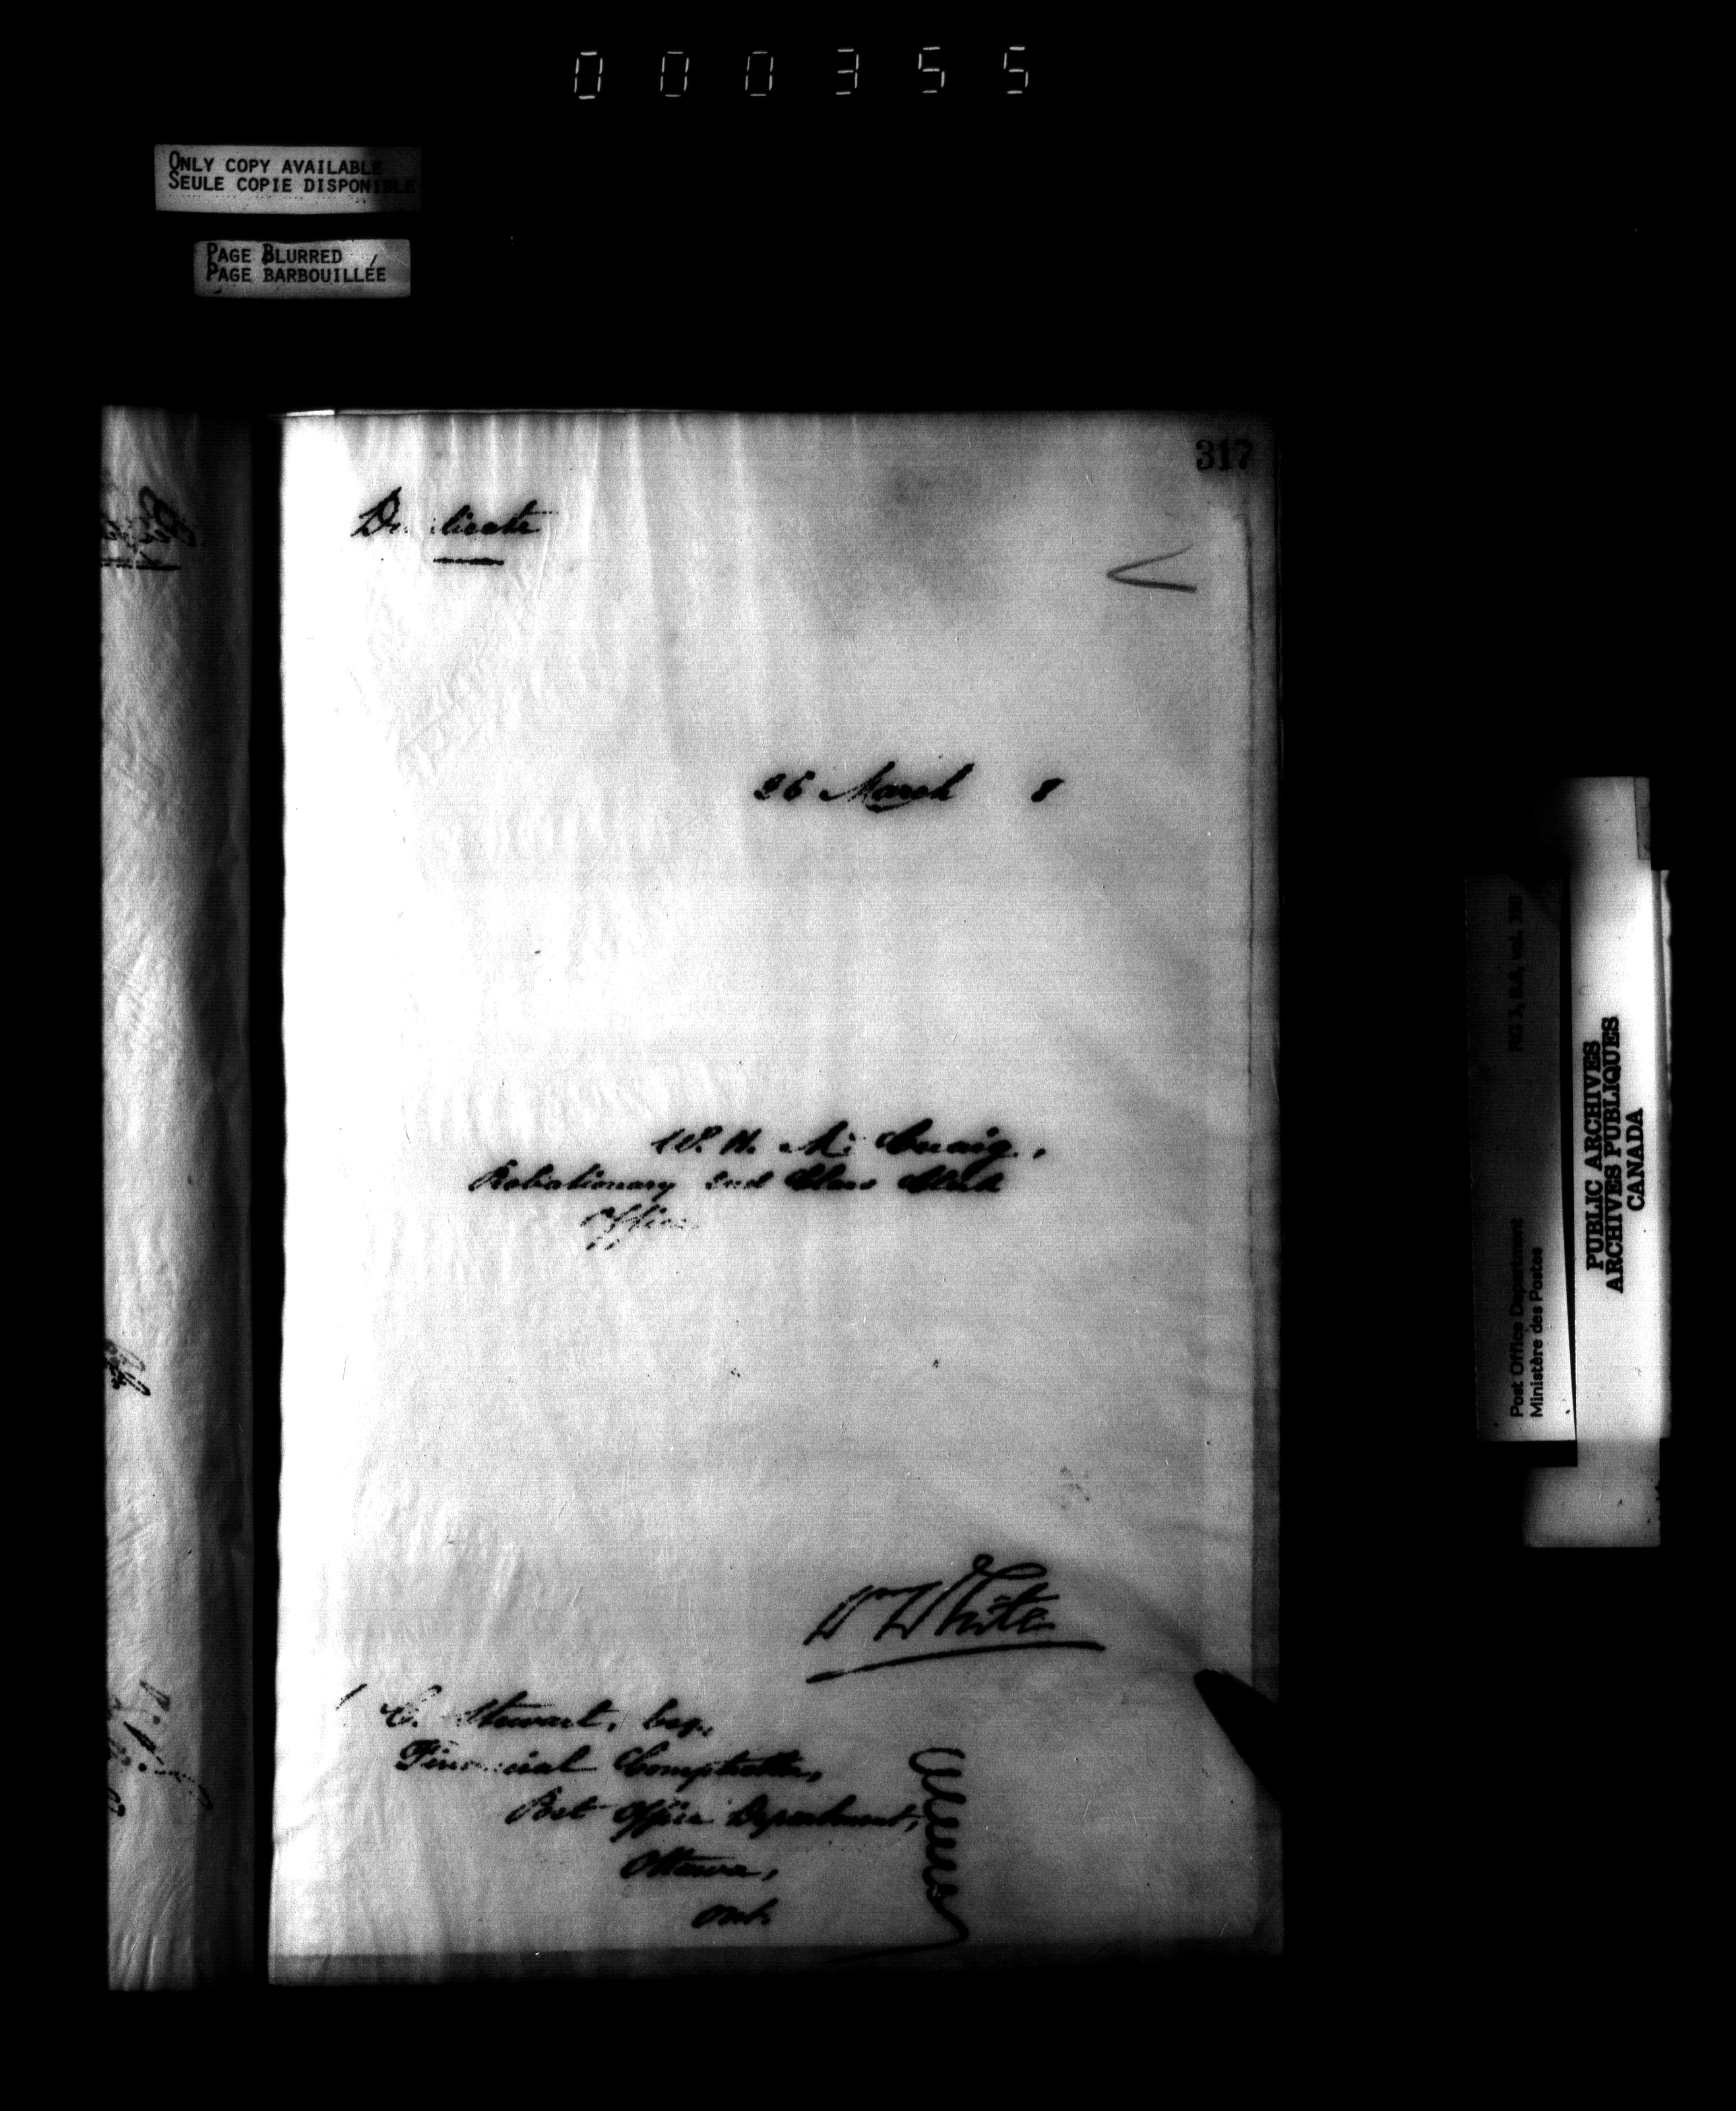 000355
ONLY COPY AVAILABLE
SEULE COPIE DISPONIBLE
PAGE BLURRED
PAGE BARBOUILLÉE
317
Duplicate
26 March 8
W. H. Mc Cuaig,
Probationary 2nd Class Clerk
Office
W White
C. Stewart, Esq.,
Financial Comptroller,
Post Office Department,
Ottawa,
Ont.
RG 3, B.8, vol. 350
Post Office Department
Ministère des Postes
PUBLIC ARCHIVES
ARCHIVES PUBLIQUES
CANADA